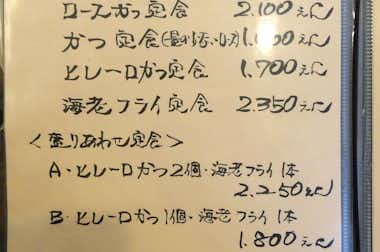 ロースかつ定食 2.100えん
かつ定食(量が多い方) えん
ヒレ一口かつ定食 1.700えん
海老フライ定食 2.350えん
<盛りあわせ定食>
A・ヒレ一口かつ2個・海老フライ1本
2.250えん
B・ヒレ一口かつ1個・海老フライ1本
1.800えん